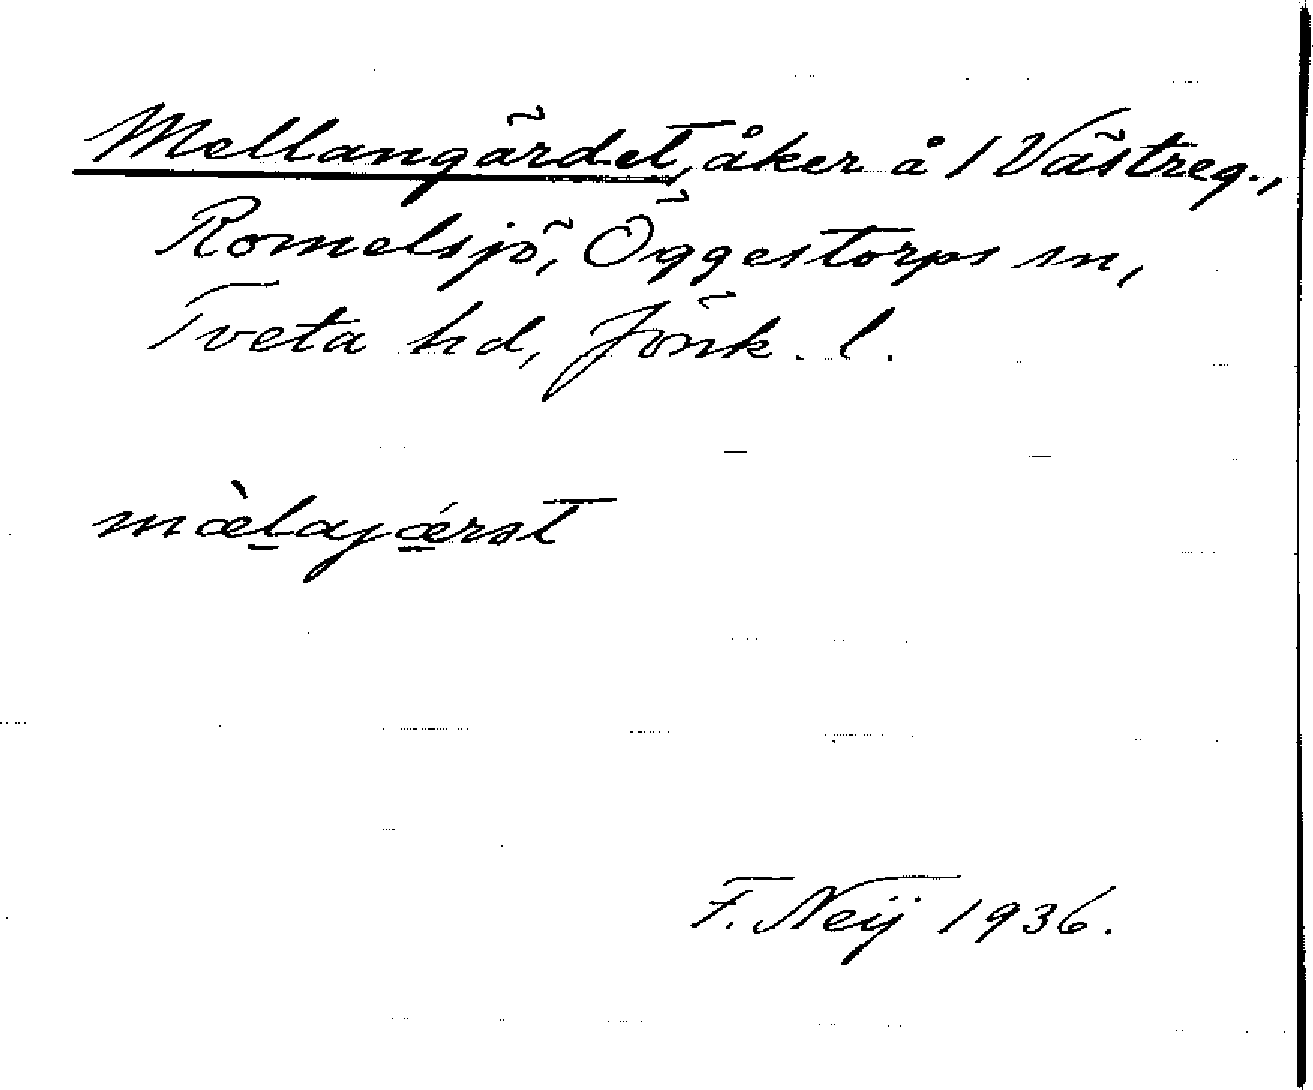 Mellangärdet, åker å 1 Västreg.,
Romelsjö, Öggestorps sn,
Tveta hd, Jönk. l.
mæ̀lajǽrst
F. Neij 1936.